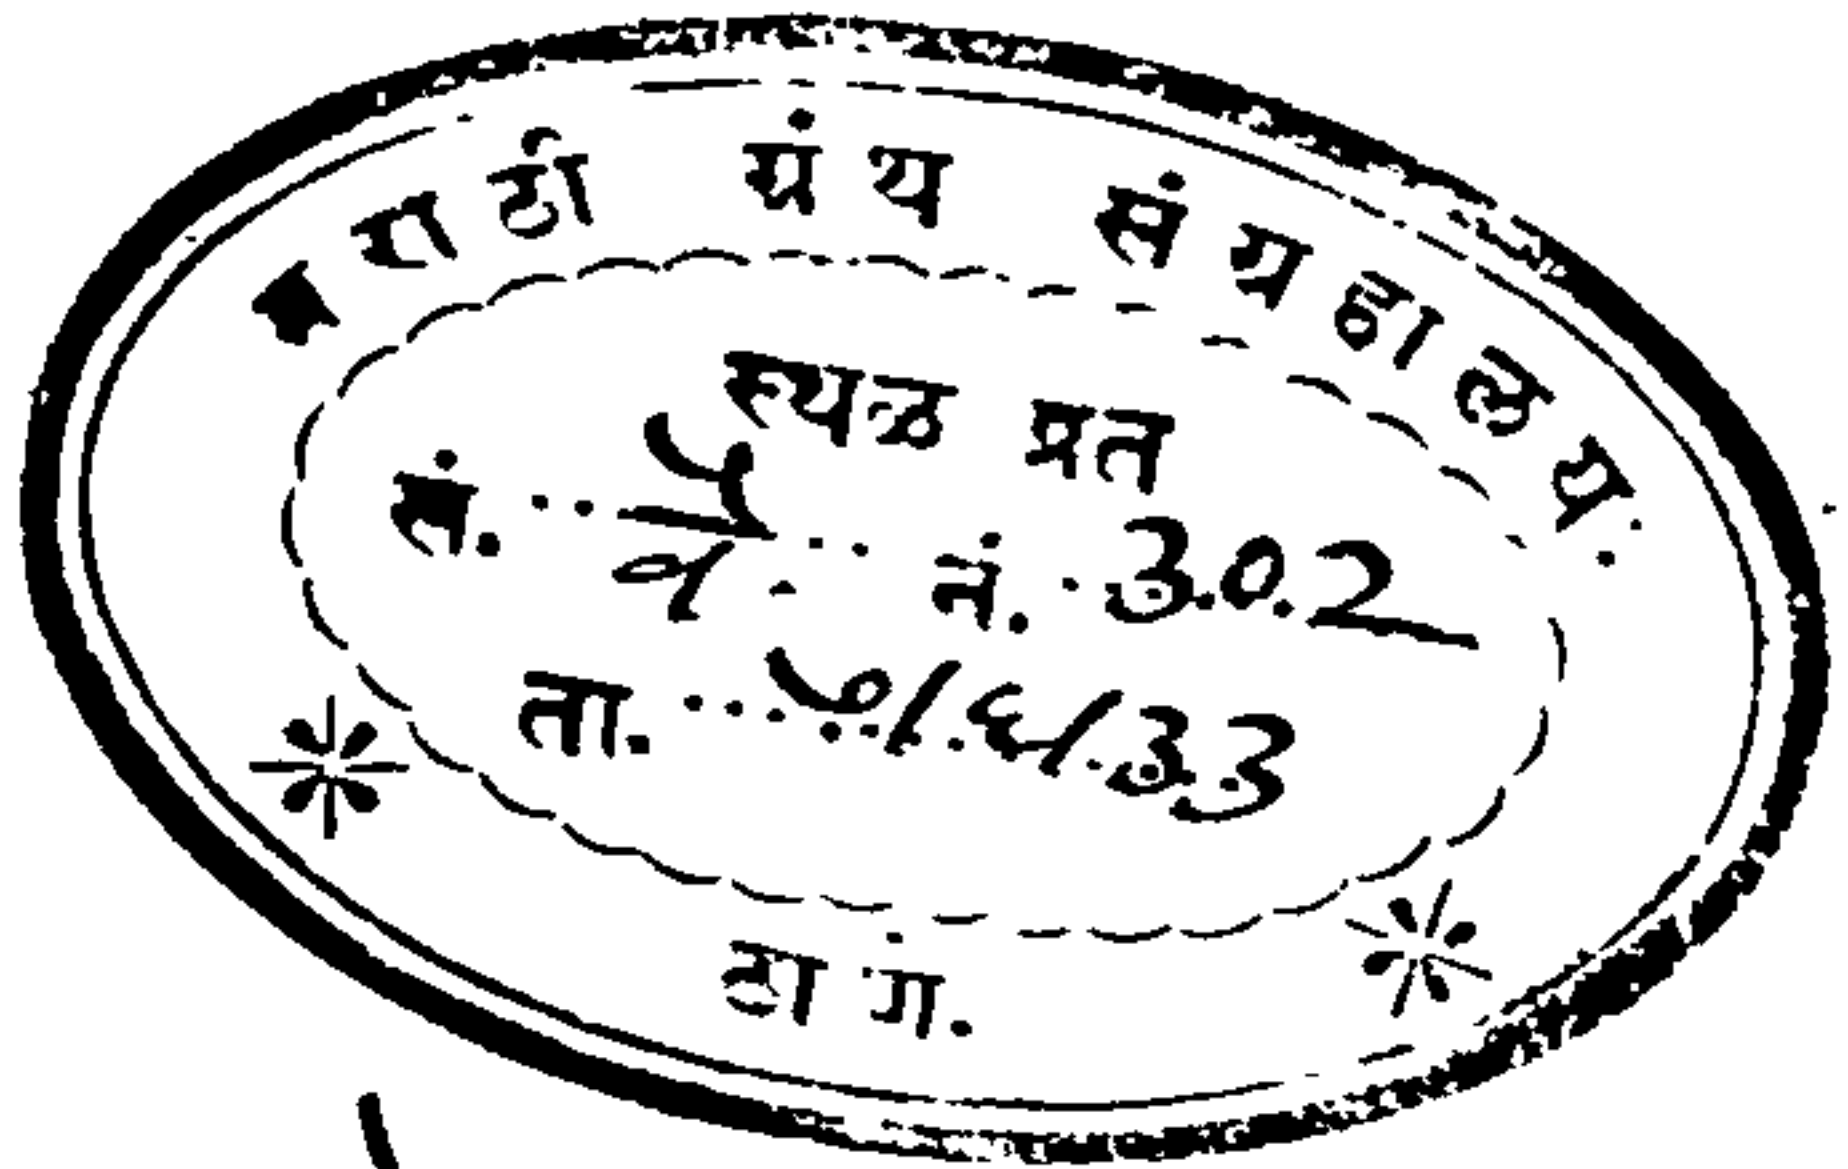 मराठी ग्रंथ संग्रहालय.
स्थळ प्रत
सं. नं. 302
ता. ५/६/33
ठाणें.